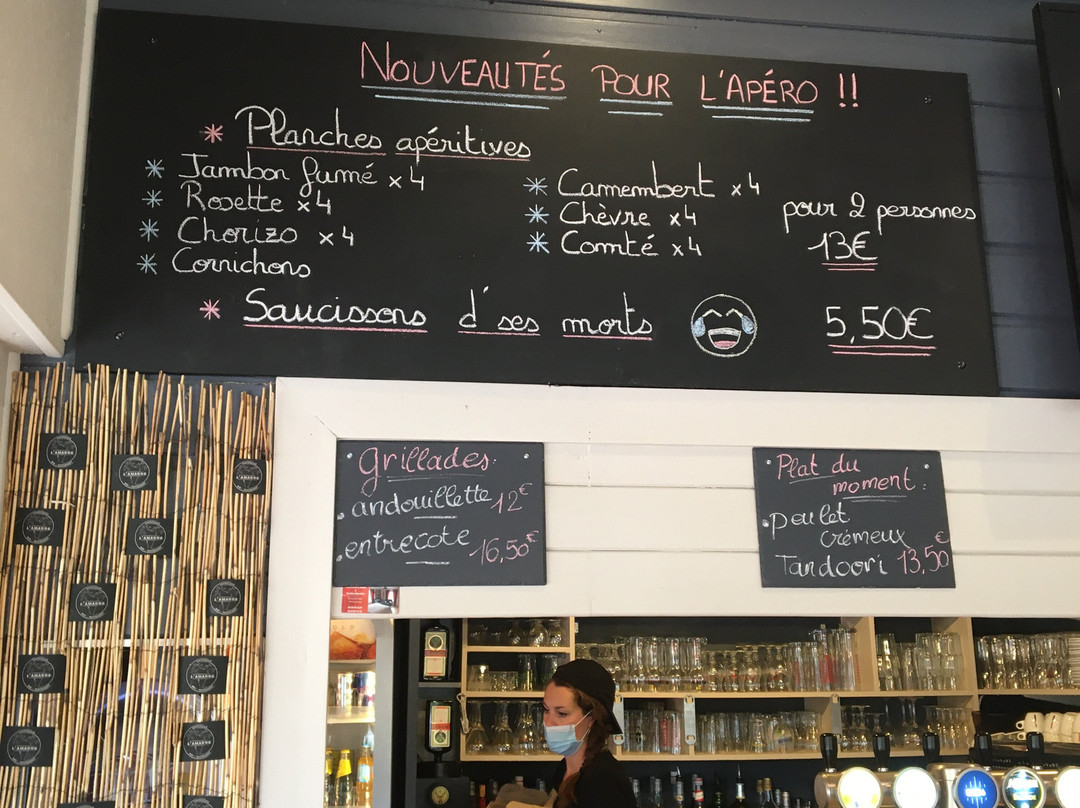 NOUVEAUTÉS POUR L'APÉRO !!
* Planches apéritives
* Jambon fumé x4
* Rosette x4
* Chorizo x4
* Cornichons
* Camembert x4
* Chèvre x4
* Comté x4
pour 2 personnes
13€
* Saucissons d'ses morts
5,50€
Grillades:
. andouillette 12€
. entrecote 16,50€
Plat du
moment:
. poulet
crémeux
Tandoori 13,50€
L'AMARRE